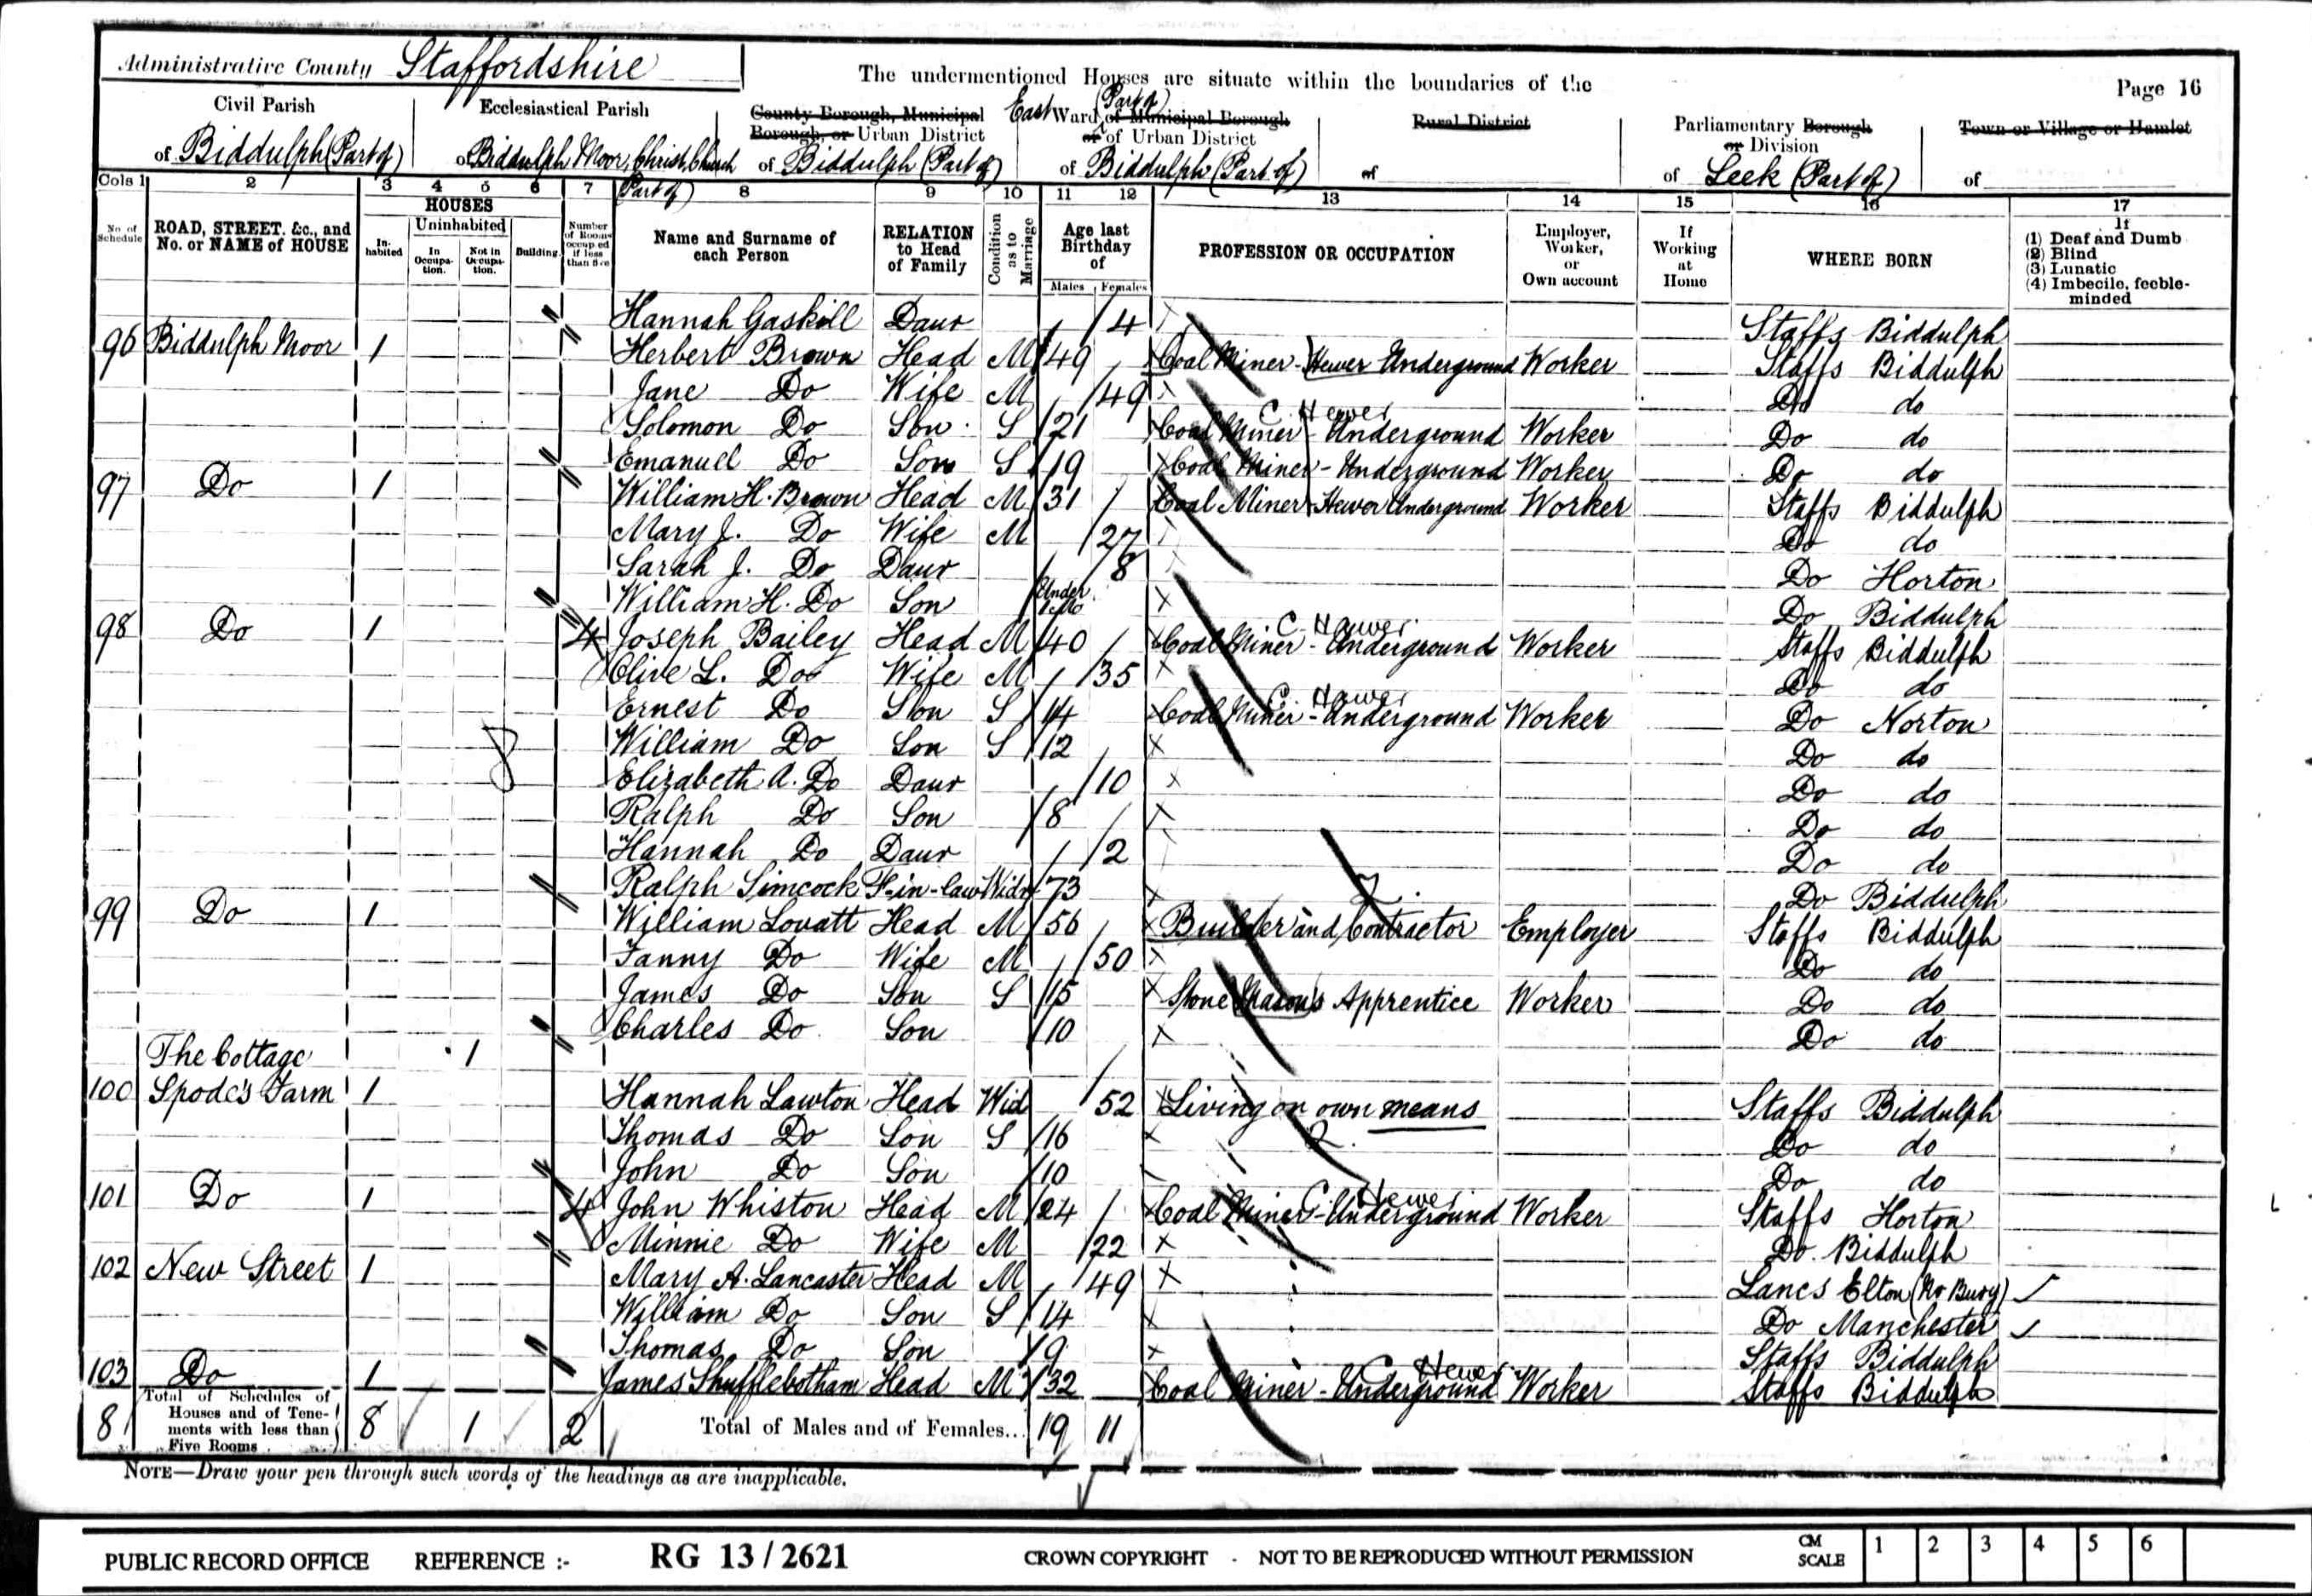 Administrative County Staffordshire
The undermentioned Houses are situate within the boundaries of the
Page 16
Civil Parish
of Biddulph (Part of)
Ecclesiastical Parish
of Biddulph Moor, Christ Church (Part of)
County Borough, Municipal Borough, or Urban District
of Biddulph (Part of)
East Ward (Part of) of Municipal Borough or of Urban District
of Biddulph (Part of)
Rural District
of
Parliamentary Borough or Division
of Leek (Part of)
Town or Village or Hamlet
of
Cols 1 2 3 4 5 6 7 8 9 10 11 12 13 14 15 16 17
No. of Schedule
ROAD, STREET, &c., and No. or NAME of HOUSE
HOUSES
Inhabited
Uninhabited
In Occupation.
Not in Occupation.
Building.
Number of Rooms occupied if less than five
Name and Surname of each Person
RELATION to Head of Family
Condition as to Marriage
Age last Birthday of
Males Females
PROFESSION OR OCCUPATION
Employer, Worker, or Own account
If Working at Home
WHERE BORN
If
(1) Deaf and Dumb
(2) Blind
(3) Lunatic
(4) Imbecile, feeble-minded
Hannah Gaskill Daur 4 Staffs Biddulph
96 Biddulph Moor 1 Herbert Brown Head M 49 Coal Miner - Hewer Underground Worker Staffs Biddulph
Jane Do Wife M 49 Do do
Solomon Do Son S 21 Coal Miner - Underground C. Hewer Worker Do do
Emanuel Do Son S 19 Coal Miner - Underground Worker Do do
97 Do 1 William H. Brown Head M 31 Coal Miner - Hewer Underground Worker Staffs Biddulph
Mary J. Do Wife M 27 Do do
Sarah J. Do Daur 8 Do Horton
William H. Do Son Under Do Biddulph
98 Do 1 4 Joseph Bailey Head M 40 Coal Miner - Underground C. Hewer Worker Staffs Biddulph
Olive L. Do Wife M 35 Do do
Ernest Do Son S 14 Coal Miner - Underground C. Hewer Worker Do Norton
William Do Son S 12 Do do
Elizabeth A. Do Daur 10 Do do
Ralph Do Son 8 Do do
Hannah Do Daur 2 Do do
Ralph Simcock F-in-law Widr 73 Do Biddulph
99 Do 1 William Lovatt Head M 56 Builder and Contractor Employer Staffs Biddulph
Fanny Do Wife M 50 Do do
James Do Son S 15 Stone Mason's Apprentice Worker Do do
Charles Do Son 10 Do do
The Cottage 1
100 Spode's Farm 1 Hannah Lawton Head Wid 52 Living on own means Staffs Biddulph
Thomas Do Son S 16 Do do
John Do Son 10 Do do
101 Do 1 4 John Whiston Head M 24 Coal Miner - Underground C. Hewer Worker Staffs Horton
Minnie Do Wife M 22 Do Biddulph
102 New Street 1 Mary A. Lancaster Head M 49 Lancs Elton (Nr Bury)
William Do Son S 14 Do Manchester
Thomas Do Son 9 Staffs Biddulph
103 Do 1 James Shufflebotham Head M 32 Coal Miner - Underground C Hewer Worker Staffs Biddulph
8 Total of Schedules of Houses and of Tenements with less than Five Rooms 8 1 2 Total of Males and of Females... 19 11
NOTE—Draw your pen through such words of the headings as are inapplicable.
PUBLIC RECORD OFFICE REFERENCE :- RG 13 / 2621 CROWN COPYRIGHT - NOT TO BE REPRODUCED WITHOUT PERMISSION CM SCALE 1 2 3 4 5 6